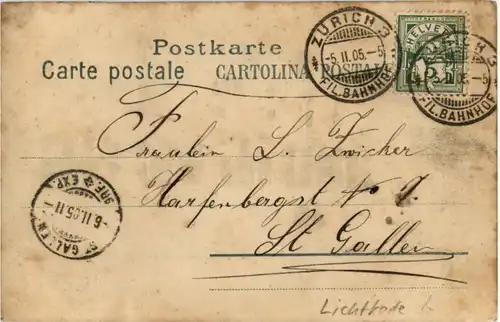 Postkarte
Carte postale CARTOLINA POSTALE
ZÜRICH 3
-5.II.05.-5
FIL. BAHNHOF
HELVETIA
5
FIL. BAHNHOF
Fräulein L. Zwicker
Harfenbergst No 7
St Gallen
ST GALLEN
-6.II.05.11-
BRF EXP.